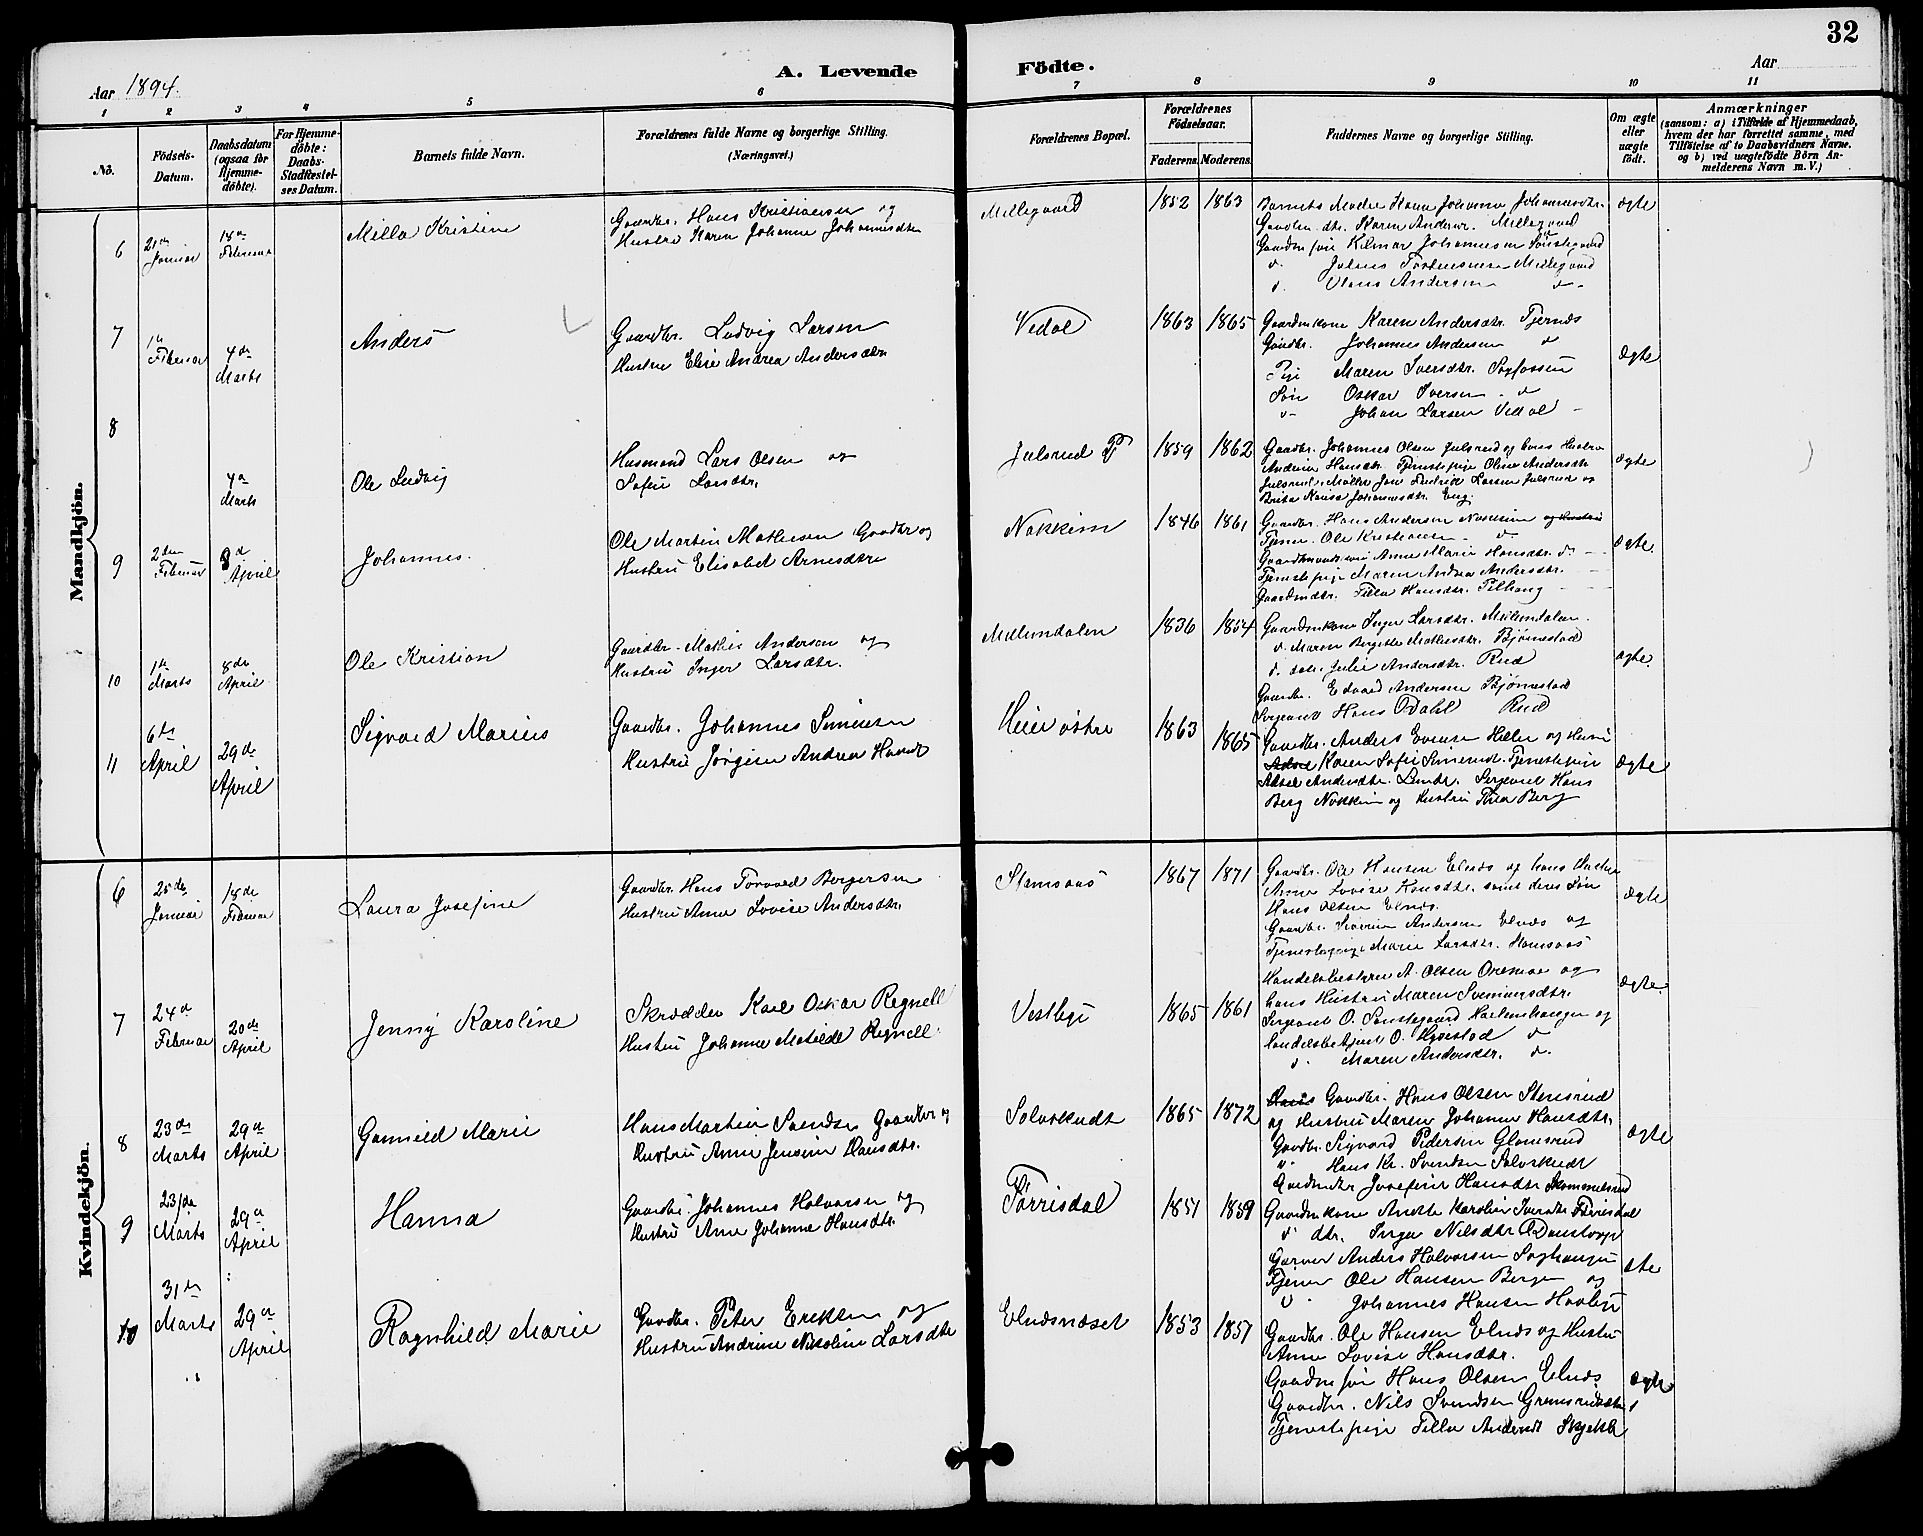 32
Aar 1894.
A. Levende
Födte.
Aar
1
2
3
4
5
6
7
8
9
10
11
No.
Födsels-
Datum.
Daabsdatum
(ogsaa for
Hjemme-
döbte).
For Hjemme-
döbte:
Daabs-
Stadfæstel-
ses Datum.
Barnets fulde Navn.
Forældrenes fulde Navne og borgerlige Stilling.
(Næringsvei.)
Forældrenes Bopæl.
Forældrenes
Födselsaar.
Faderens.
Moderens.
Faddernes Navne og borgerlige Stilling.
Om ægte
eller
uægte
födt.
Anmærkninger
(saasom: a) i Tilfælde af Hjemmedaab,
hvem der har forrettet samme, med
Tilföielse af to Daabsvidners Navne.
og b) ved uægtefödte Börn An-
melderens Navn m. V.)
Mandkjön.
6
21de
Januar
18de
Februar
Milla Kristine
Gaardbr. Hans Kristiansen og
Hustru Karen Johanne Johannesdtr
Millegaard
1852
1863
Barnets Moder Karen Johanne Johannesdtr.
Gaardm. dtr. Karen Anders. Millegaard
Gaardm søn Hilmar Johannesen
d. Julius Torstensen Millegaard
d. Andersen
ægte
7
1ste
Februar
4de
Marts
Anders
Gaardbr. Ludvig Larsen
Hustru Elise Andrea Andersdtr.
Vedal
1863
1865
Gaardmkone Karen Andersdtr. Tjernes
Gaardbr. Johannes Andersen d
Pige Maren Iversdtr. Sagfossen
Søn Oskar Iversen d
Johan Larsen Vedal
Ægte
8
4de
Marts
Ole Ludvig
Husmand Lars Olsen og
Sofie Larsdtr.
Julsrud P
1859
1862
Gaardbr. Johannes Olsen Julsrud og hans Hustru
Andrine Hansdtr. Tjenestepige Oline Andersdtr
Julsrud. Møller Larsen Julsrud og
Johannesdtr. Eng.
ægte
9
2den
Februar
8de
April
Johannes.
Ole Martin Mathesen Gaardbr og
Hustru Elisabet Arnesdtr
Nokkim
1846
1861
Gaardbr. Hans Andersen
Tjener. Ole Kristiansen d
Anne Marie Hansdtr. d.
Tjenestepige Maren Andrea Andersdtr.
Gaardmdtr. Tilla Hansdtr.
ægte
10
1ste
Marts
8de
April
Ole Kristian
Gaardbr. Mathis Andersen og
Hustru Inger Larsdtr.
Mellemdalen
1836
1854
Gaardmkone Inger Larsdtr. Mellemdalen.
d. Maren Bergitte Mathisdtr. Bjørnestad
d. dtr. Julie Andersdtr. Rud
Gaardbr. Edvard Andersen Bjørnestad
Sergeant Hans Odahl Rud
ægte
11
6te
April
29de
April
Sigvard Marius
Gaardbr. Johannes Simensen
Hustru Jørgine Andrea Hansdt
Heier østre
1863
1865
Gaardbr. Anders Evensen Heller og Hustru
Karen Sofie Simensdt. Tjenestepige
Andersdtr. Sergeant Hans
Berg Nokkim og Hustru Thea Berg
Ægte
Kvindekjön.
6
25de
Januar
18de
Februar
Laura Josefine
Gaardbr. Hans Torvald Bergersen
Hustru Anne Lovise Andersdtr.
Stamsaas
1867
1871
Gaardbr. Ole Hansen Elnæs og hans Hustru
Anne Lovise Hansdtr. samt deres Søn
Hans Olsen Elnæs.
Gaardbr. Andersen Elnæs og
Tjenestepige Marie Larsdtr.
ægte
7
24de
Februar
20de
April
Jenny Karoline
Skrædder Karl Oskar Regnell
Hustru Johanne Matilde Regnell.
Vestbye
1865
1861
Handelsbestyrer A. Olsen og
hans Hustru Maren
Sergeant O. og
O. d
Maren Andersdtr. d.
ægte
8
23de
Marts
29de
April
Gunnild Marie
Hans Martin Svendsen Gaardbr og
Hustru Anne Jensine Hansdtr.
Solvskudt
1865
1872
Gaardbr. Hans Olsen Stensrud
og Hustru Maren Johanne Hansdtr.
Gaardbr. Sigvard Pedersen Glomsrud
Hans Kr. Svendsen Solvskudt
Josefine Hansdtr
ægte
9
23de
Marts
29de
April
Hanna
Gaardbr. Johannes Halvorsen og
Hustru Anne Johanne Hansdtr.
Tørrisdal
1851
1859
Gaardmkone Anette Karoline Tørrisdal
d dtr. Inger Nilsdtr
Garver Anders Halvorsen
Tjener Ole Hansen Berge og
Johannes Hansen
10
31te
Marts
29de
April
Ragnhild Marie
Gaardbr. Peter Eriksen og
Hustru Andrine Nikoline Larsdtr
Elnæsnæset
1853
1857
Gaardbr. Ole Hansen Elnæs og Hustru
Anne Lovise Hansdtr.
Gaardm søn Hans Olsen Elnæs.
Gaardbr. Nils Svendsen
Tjenestepige Tilla Andersdt
ægte